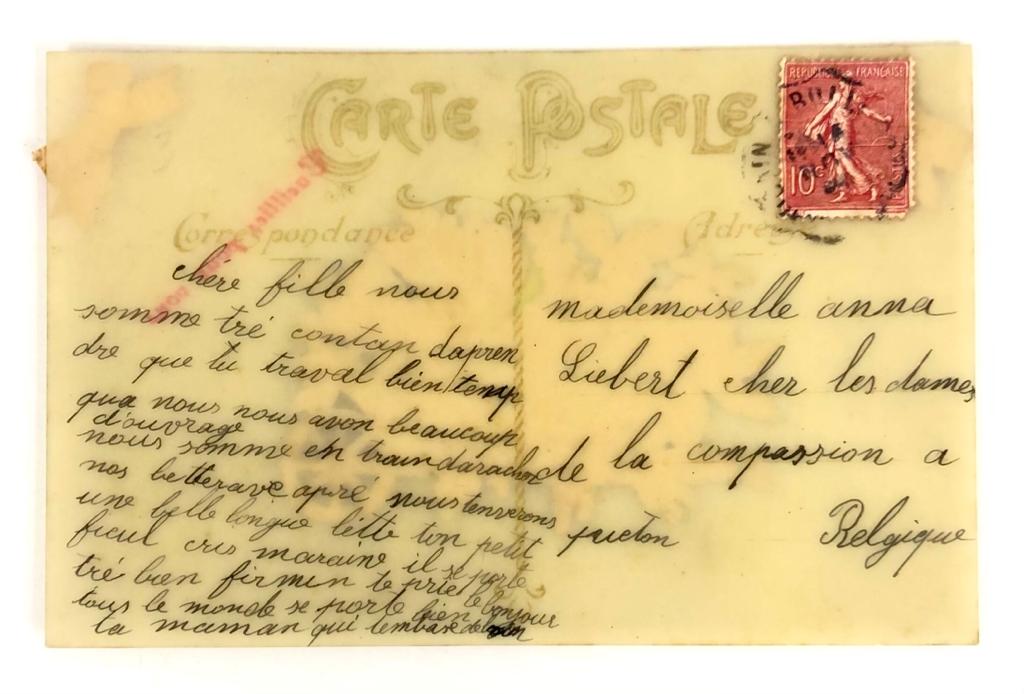 CARTE POSTALE
REPUBLIQUE FRANÇAISE
10
Correspondance
Adresse
chére fille nous
somme tré contan dapren
dre que tu traval bien temp
qua nous nous avon beaucoup
d'ouvrage
nous somme en train darachox
nos betterave apré nous tenverons
une belle longue lètte ton petit
fieul cris maraine il se porte
tré bien firmin te prte le bonjour
tous le monde se porte bien
ta maman qui tembase de
mademoiselle anna
Liebert cher les dames
de la compassion a
Belgique